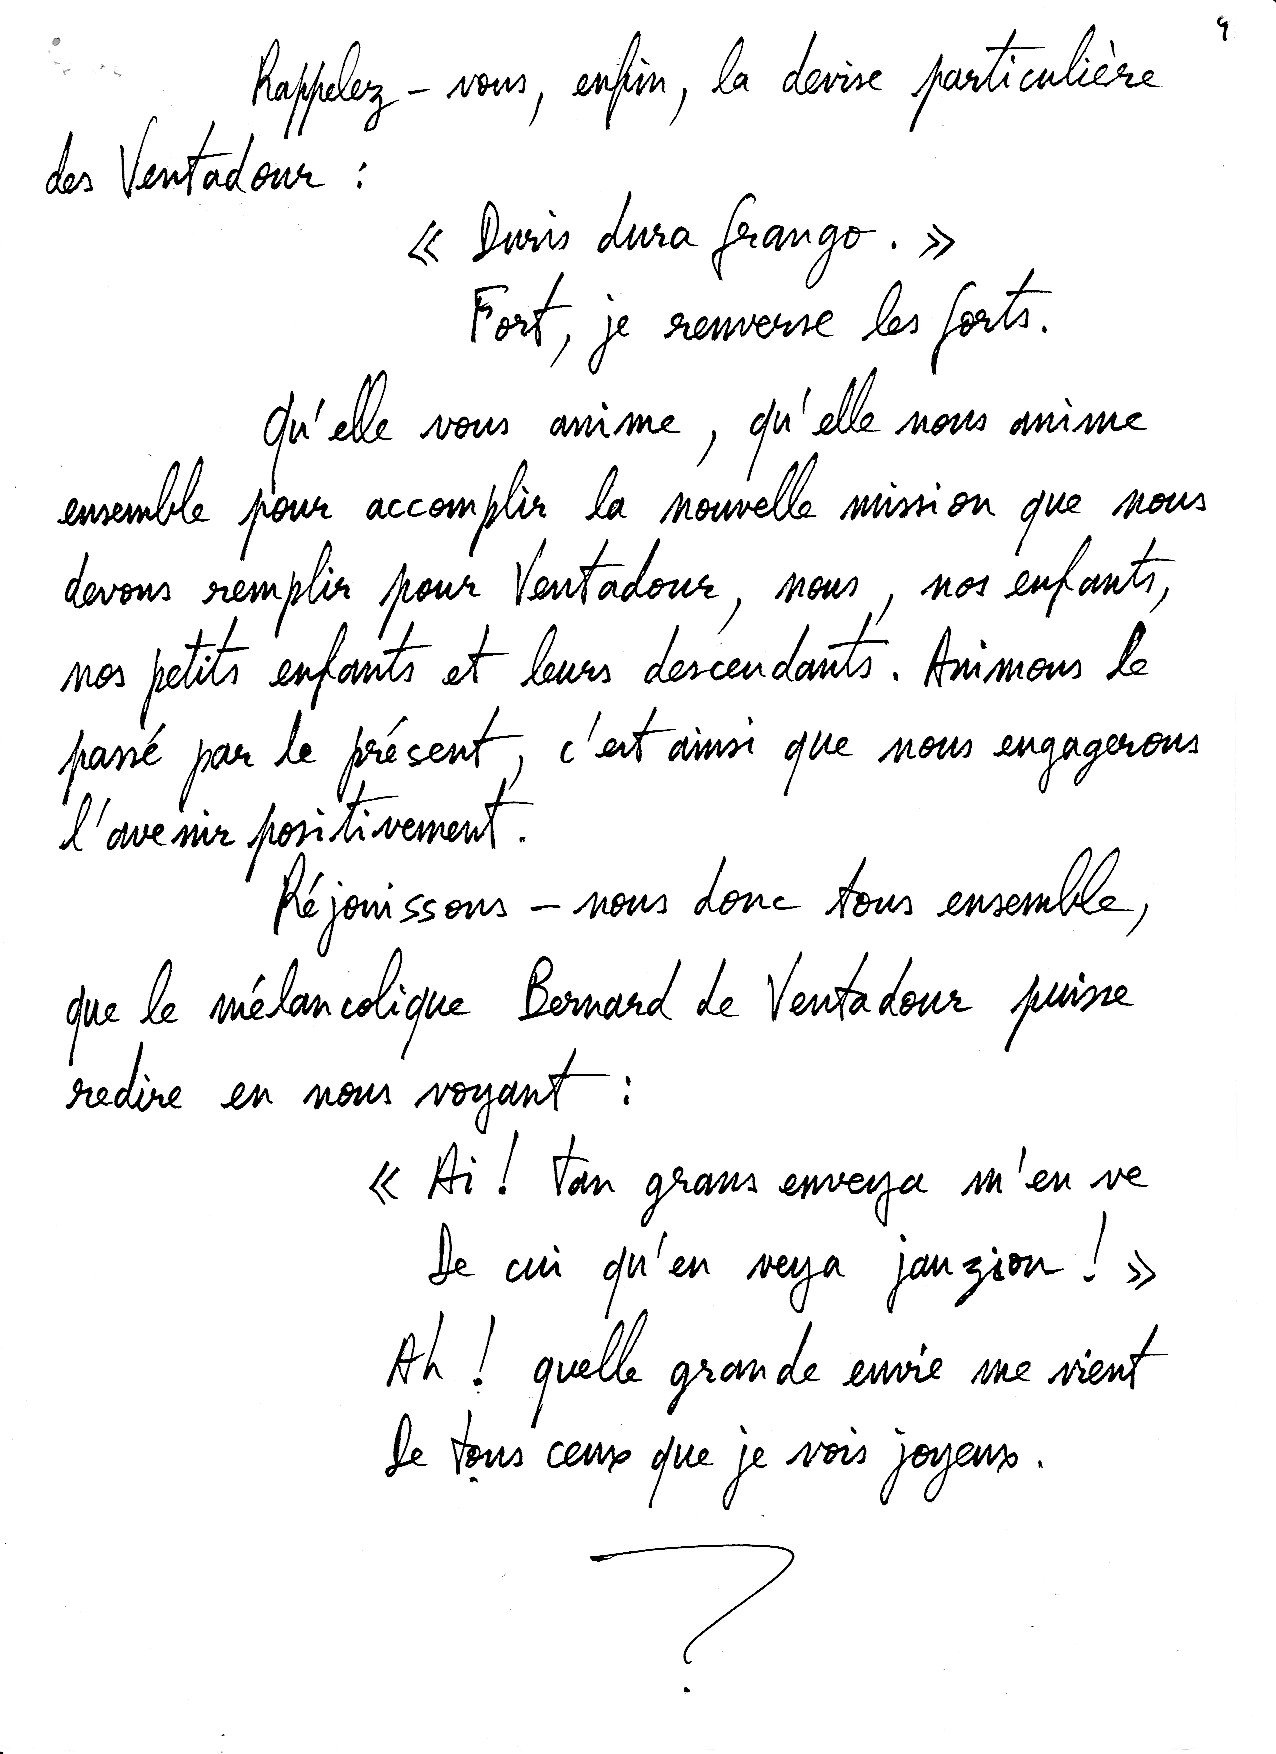 9
Rappelez-vous, enfin, la devise particulière
des Ventadour :
« Duris dura frango. »
Fort, je renverse les forts.
Qu'elle vous anime, qu'elle nous anime
ensemble pour accomplir la nouvelle mission que nous
devons remplir pour Ventadour, nous, nos enfants,
nos petits enfants et leurs descendants. Animons le
passé par le présent, c'est ainsi que nous engagerons
l'avenir positivement.
Réjouissons-nous donc tous ensemble,
que le mélancolique Bernard de Ventadour puisse
redire en nous voyant :
« Ai ! tan grans enveya m'en ve
De cui qu'en veya jauzion ! »
Ah ! quelle grande envie me vient
De tous ceux que je vois joyeux.